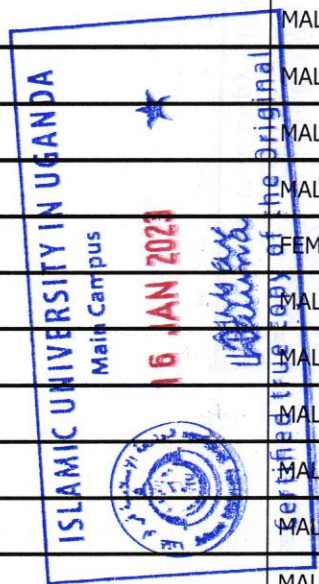 ISLAMIC UNIVERSITY IN UGANDA
Main Campus
16 JAN 2023
Certified true copy of the Original
MAL
MAL
MAL
MAL
FEM
MAL
MAL
MAL
MAL
MAL
MAL